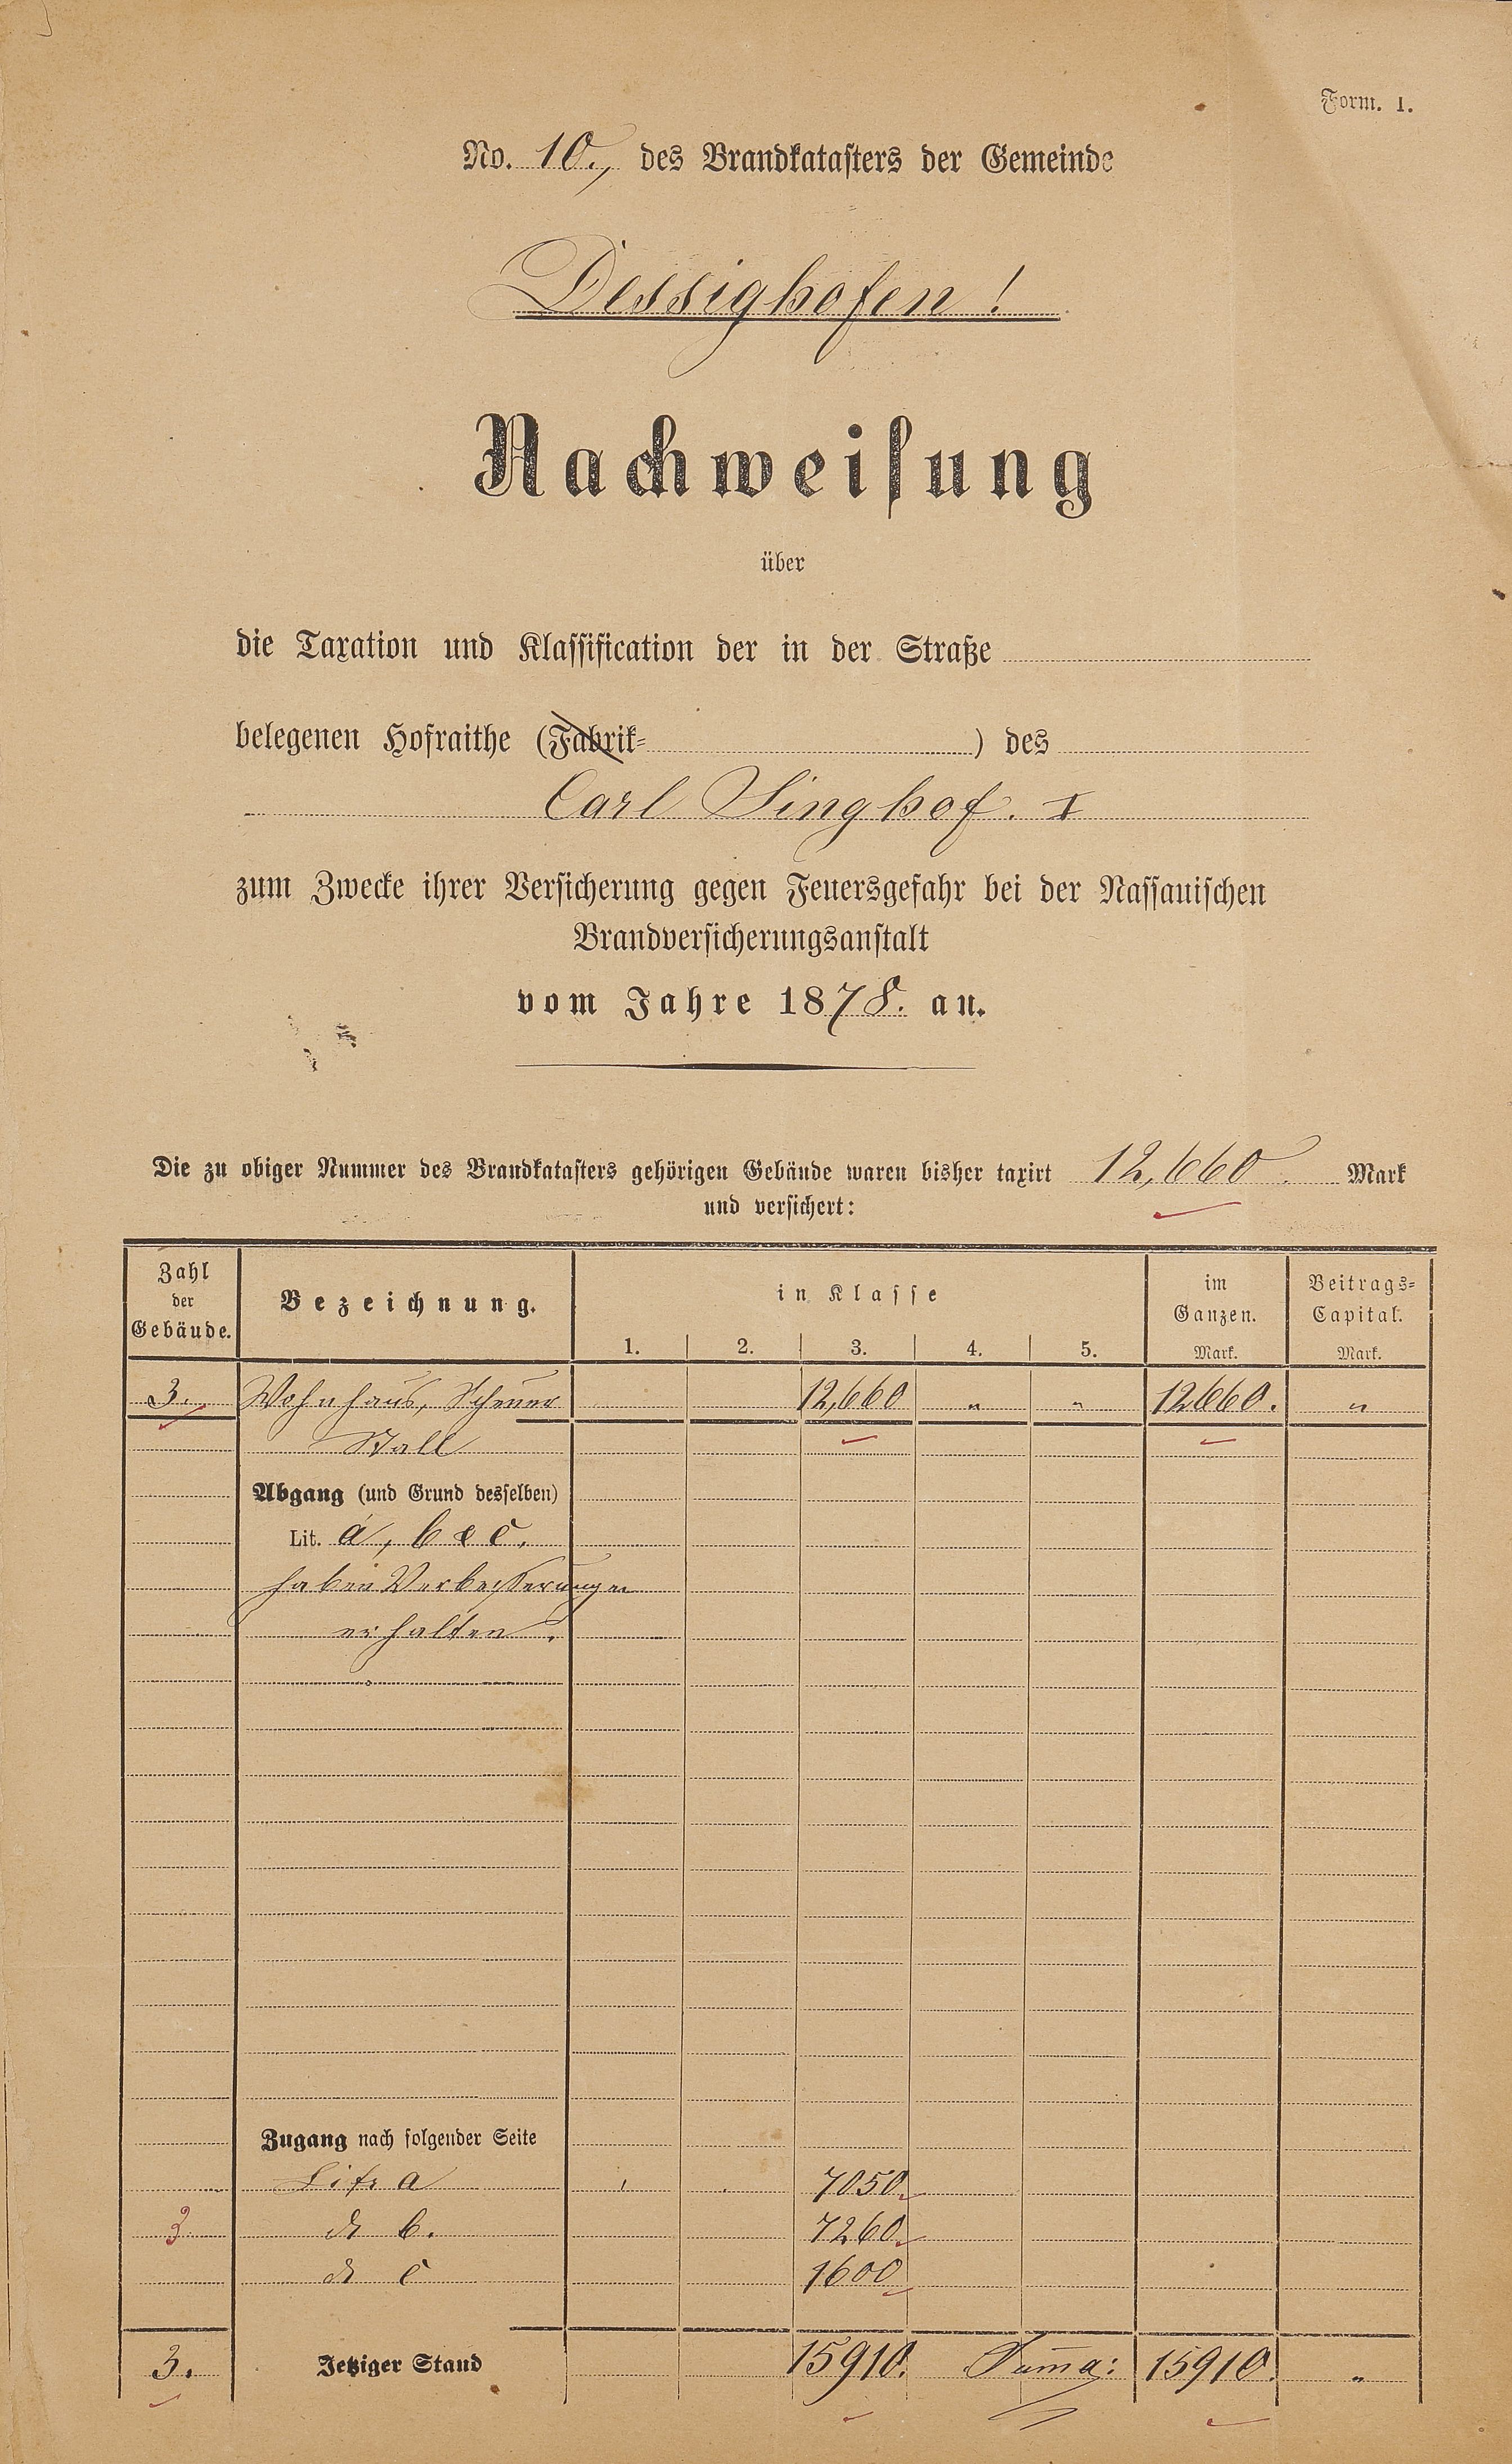 Form. 1.
No. 10., des Brandkatasters der Gemeinde
Dessighofen!
Nachweisung
über
die Taxation und Klassification der in der Straße
belegenen Hofraithe (Fabrik= ) des
Carl Singhof. I
zum Zwecke ihrer Versicherung gegen Feuersgefahr bei der Nassauischen
Brandversicherungsanstalt
vom Jahre 1878. an.
Die zu obiger Nummer des Brandkatasters gehörigen Gebäude waren bisher taxirt 12,660. Mark
und versichert:
Zahl der Gebäude. Bezeichnung. in Klasse 1. 2. 3. 4. 5. im Ganzen. Mark. Beitrags= Capital. Mark.
3. Wohnhaus, Scheuer 12,660 " " 12660. "
Stall
Abgang (und Grund desselben)
Lit. a, b & c.
haben Verbesserungen
erhalten.
Zugang nach folgender Seite
Litr a 7050.
3 do b. 7260.
do c 1600
3. Jetziger Stand 15910. Suma: 15910. "